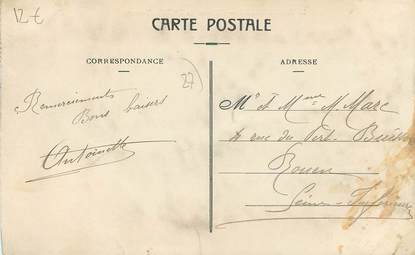 12€
CARTE POSTALE
CORRESPONDANCE
ADRESSE
27
Remerciements
Bons baisers
Antoinette
Mr et Mme M. Marc
4 rue du Vert. Buisson
Rouen
Seine-Inférieure